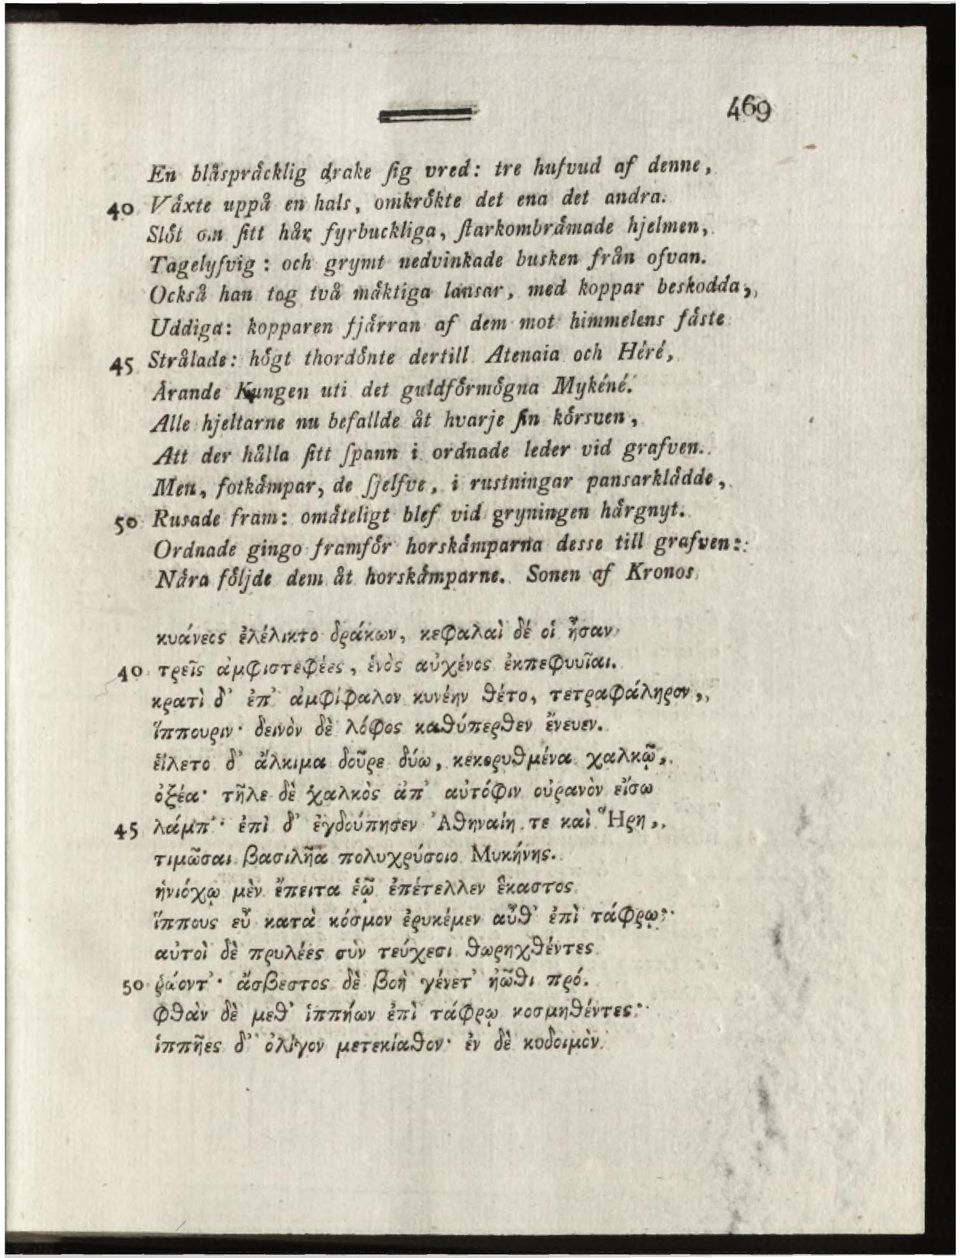 469
En blåspräcklig drake sig vred: tre hufvud af denne,
40 Växte uppå en hals, omkrökte det ena det andra.
Slöt om sitt hår fyrbuckliga, starkombrämade hjelmen,
Tagelyfvig: och grymt nedvinkade busken från ofvan.
Också han tog två mäktiga lansar, med koppar beskodda,
Uddiga: kopparen fjärran af dem mot himmelens fäste
45 Strålade: högt thordönte dertill Atenaia och Héré,
Ärande Kungen uti det guldförmögna Mykéné.
Alle hjeltarne nu befallde åt hvarje sin körsven,
Att der hålla sitt spann i ordnade leder vid grafven.
Men, fotkämpar, de sjelfve, i rustningar pansarklädde,
50 Rusade fram: omåteligt blef vid gryningen härgnyt.
Ordnade gingo framför horskämparna desse till grafven:
Nära följde dem åt horskämparne. Sonen af Kronos
κυάνεος ἐλέλικτο δράκων, κεφαλαὶ δέ οἱ ἦσαν
40 τρεῖς ἀμφιστεφέες, ἑνὸς αὐχένος ἐκπεφυυῖαι.
κρατὶ δ' ἐπ' ἀμφίφαλον κυνέην θέτο, τετραφάληρον,
ἵππουριν· δεινὸν δὲ λόφος καθύπερθεν ἔνευεν.
εἵλετο δ' ἄλκιμα δοῦρε δύω, κεκορυθμένα χαλκῷ,
ὀξέα· τῆλε δὲ χαλκὸς ἀπ' αὐτόφιν οὐρανὸν εἴσω
45 λάμπ'· ἐπὶ δ' ἐγδούπησεν Ἀθηναίη τε καὶ Ἥρη,
τιμῶσαι βασιλῆα πολυχρύσοιο Μυκήνης.
ἡνιόχῳ μὲν ἔπειτα ἑῷ ἐπέτελλεν ἕκαστος
ἵππους εὖ κατὰ κόσμον ἐρυκέμεν αὖθ' ἐπὶ τάφρῳ·
αὐτοὶ δὲ πρυλέες σὺν τεύχεσι θωρηχθέντες
50 ῥώοντ'· ἄσβεστος δὲ βοὴ γένετ' ἠῶθι πρό.
φθὰν δὲ μεθ' ἱππήων ἐπὶ τάφρῳ κοσμηθέντες·
ἱππῆες δ' ὀλίγον μετεκίαθον· ἐν δὲ κυδοιμὸν